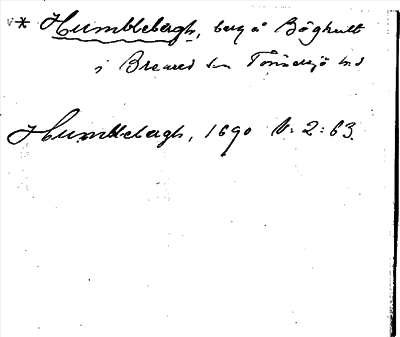 * Humblebergh, berg å Böghult
i Breared sn Tönnersjö hd
Humblebergh, 1690 V: 2: 63.